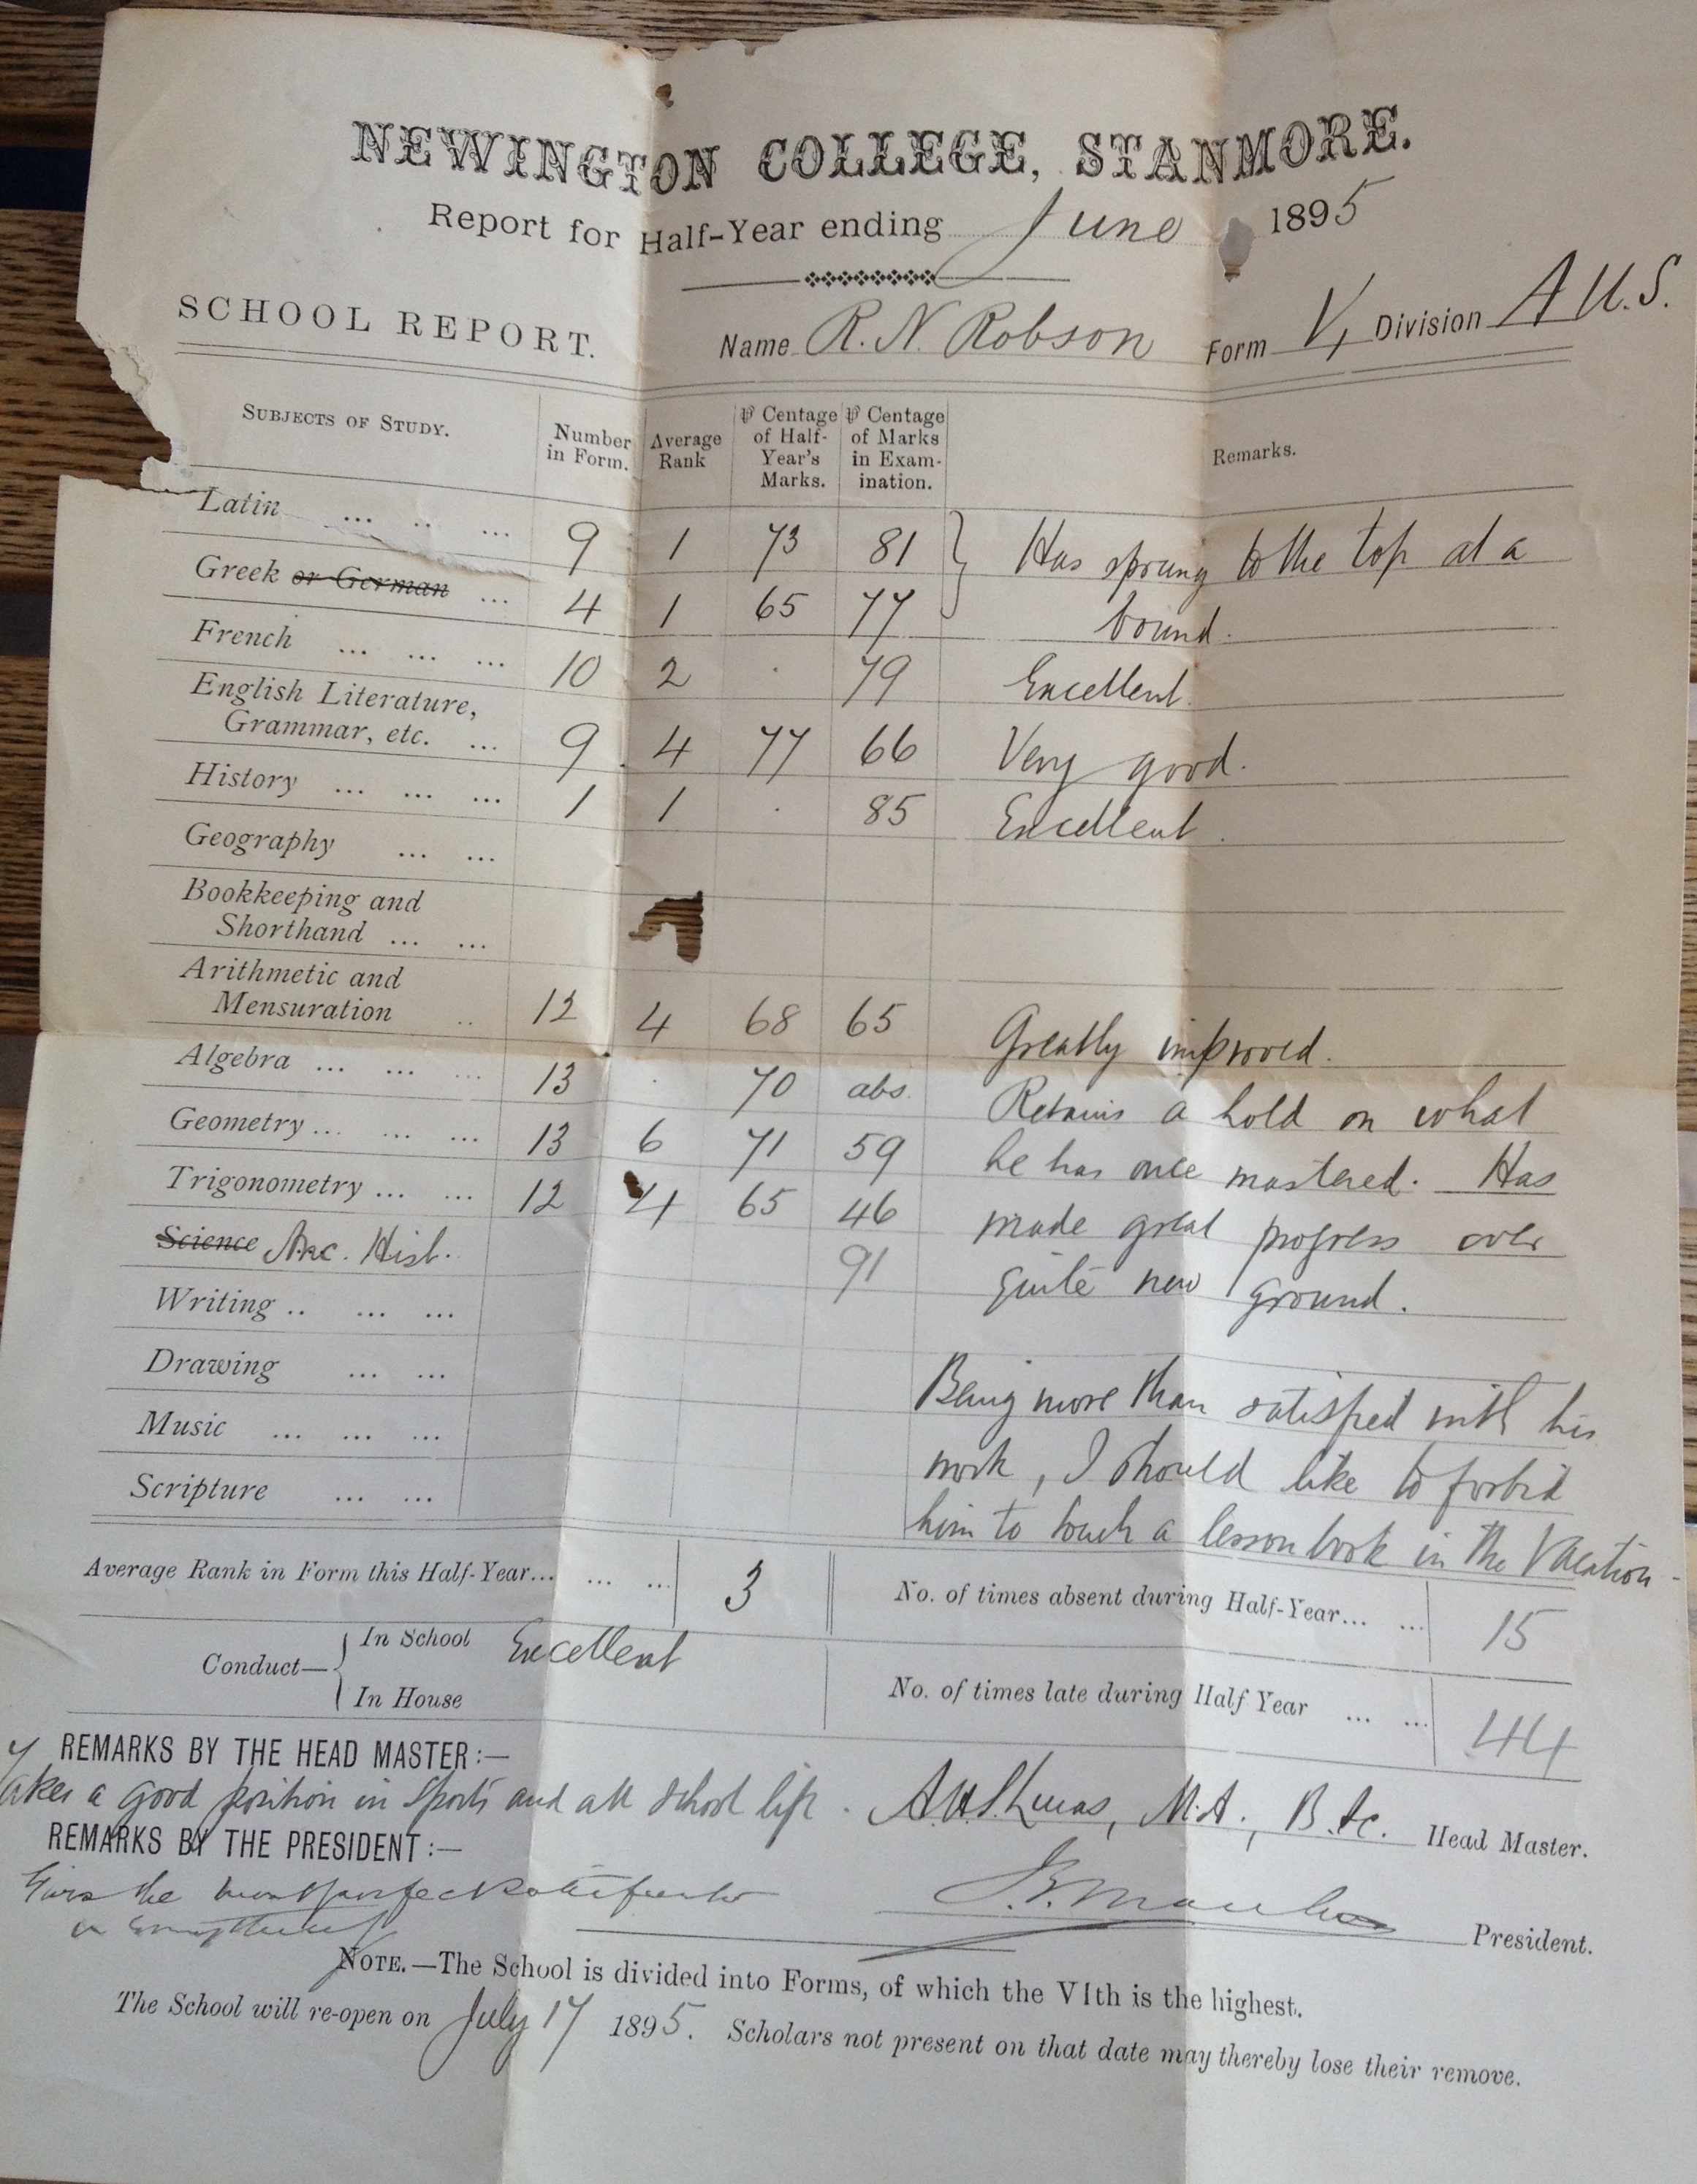 NEWINGTON COLLEGE, STANMORE.
Report for Half-Year ending June 1895
SCHOOL REPORT. Name R. N. Robson Form V, Division A U.S.
SUBJECTS OF STUDY. Number in Form. Average Rank ⅌ Centage of Half-Year's Marks. ⅌ Centage of Marks in Examination. Remarks.
Latin ... .. ... 9 1 73 81 Has sprung to the top at a
Greek or German ... 4 1 65 77 bound.
French ... ... ... 10 2 . 79 Excellent.
English Literature,
Grammar, etc. ... 9 4 77 66 Very good.
History ... ... ... 1 1 . 85 Excellent.
Geography ... ...
Bookkeeping and
Shorthand ... ...
Arithmetic and
Mensuration .. 12 4 68 65 Greatly improved.
Algebra ... ... ... 13 . 70 abs. Retains a hold on what
Geometry ... ... ... 13 6 71 59 he has once mastered. Has
Trigonometry ... ... 12 4 65 46 made great progress over
Science Anc. Hist. 91 quite new ground.
Writing .. ... ...
Drawing ... ... Being more than satisfied with his
Music ... ... ... work, I should like to forbid
Scripture ... ... him to touch a lesson book in the Vacation
Average Rank in Form this Half-Year... ... ... 3 No. of times absent during Half-Year... ... 15
Conduct— In School Excellent
In House No. of times late during Half Year ... ... 44
REMARKS BY THE HEAD MASTER:—
Takes a good position in Sports and all school life. A.H.S. Lucas, M.A., B.Sc. Head Master.
REMARKS BY THE PRESIDENT:—
Gives the most perfect satisfaction President.
in everything
NOTE.—The School is divided into Forms, of which the VIth is the highest.
The School will re-open on July 17 1895. Scholars not present on that date may thereby lose their remove.